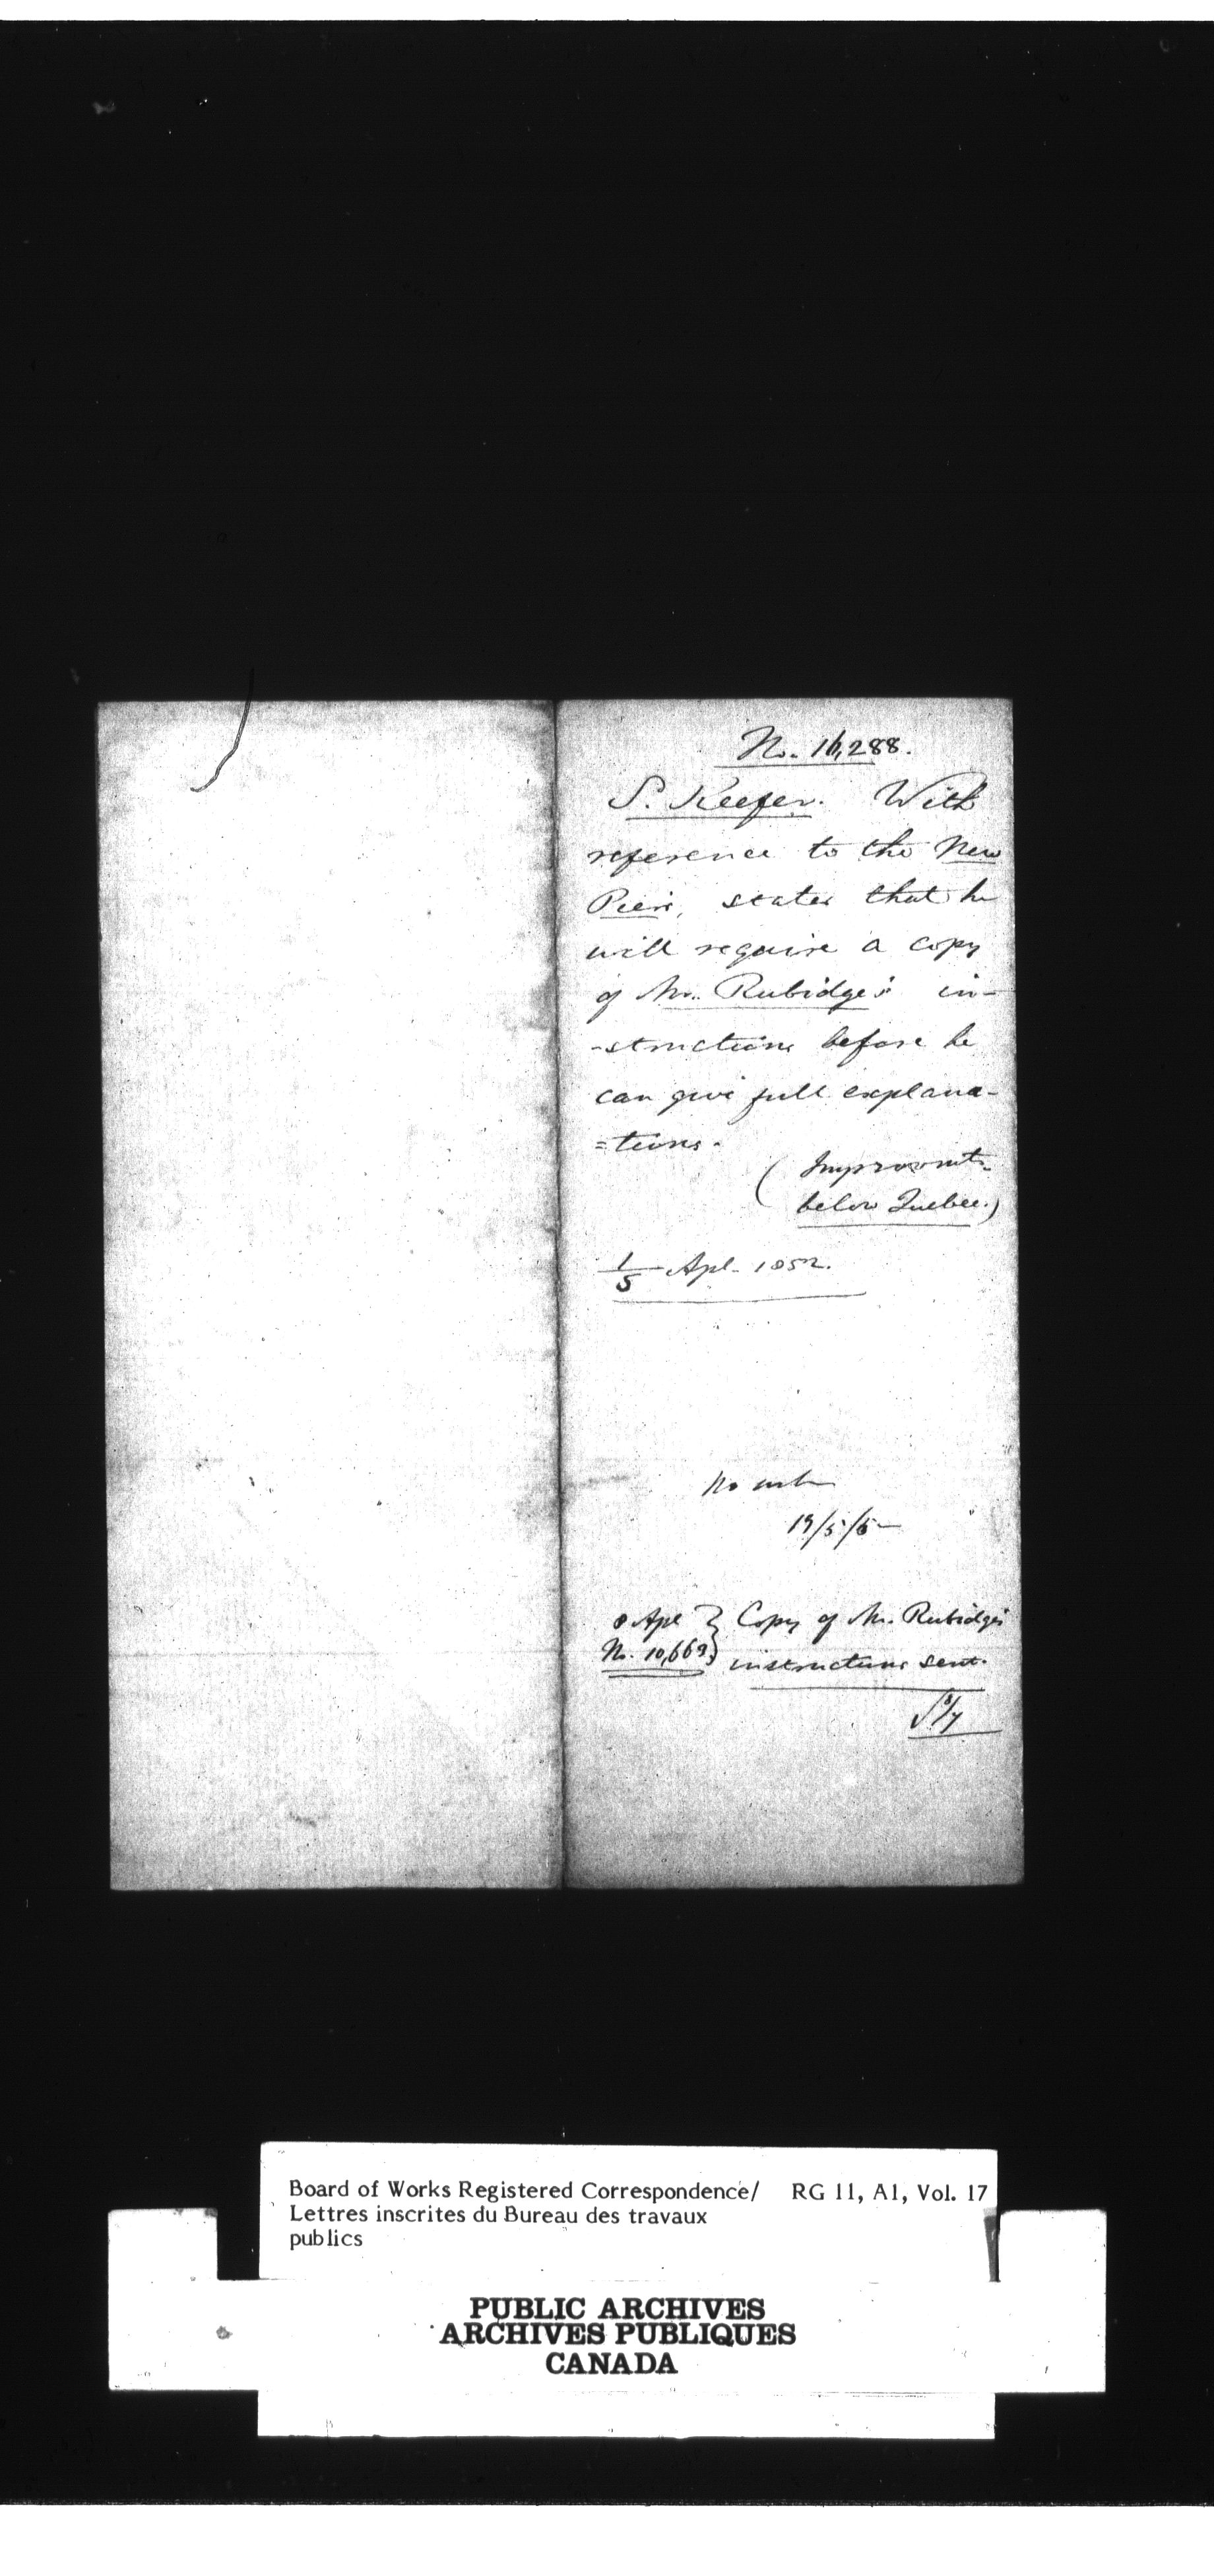 No. 16,288.
S. Keefer. With
reference to the New
Piers, states that he
will require a copy
of Mr. Rubidge's in-
-structions before he
can give full explana-
=tions.
( Improvmts.
below Quebec.)
1/5 Apl. 1852.
No
19/5/5
8 Apl } Copy of Mr. Rubidge's
No. 10,669 } instructions sent.
Board of Works Registered Correspondence/ RG 11, A1, Vol. 17
Lettres inscrites du Bureau des travaux
publics
PUBLIC ARCHIVES
ARCHIVES PUBLIQUES
CANADA